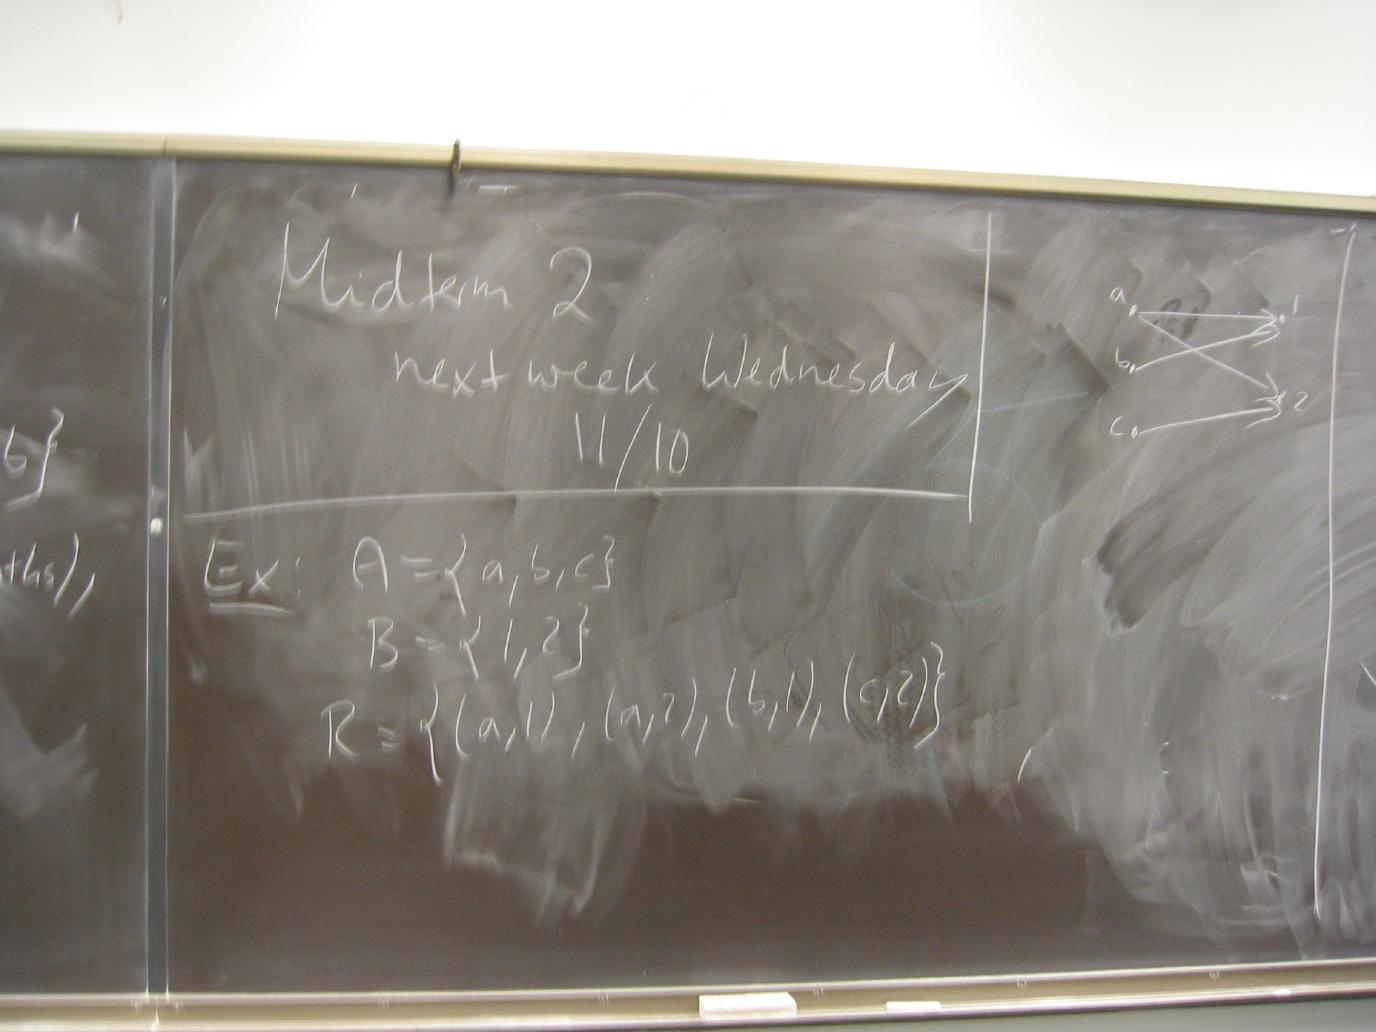 b}
ths),
Midterm 2
next week Wednesday
11/10
Ex: A = {a, b, c}
B = {1, 2}
R = {(a,1), (a,2), (b,1), (c,2)}
a 1
b
c 2